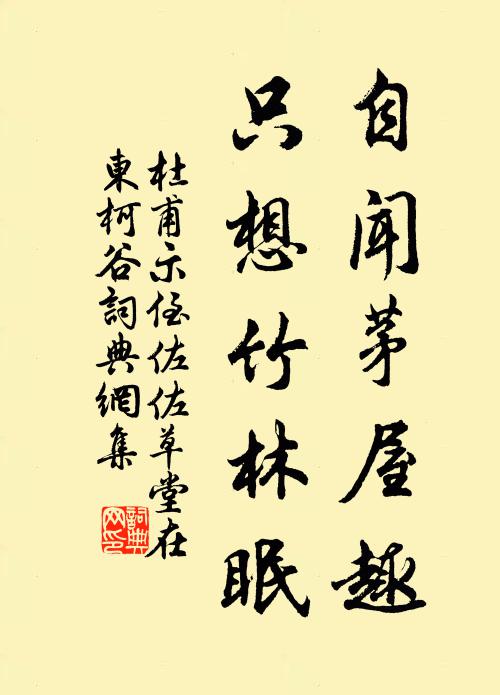 自聞茅屋趣
只想竹林眠
杜甫示侄佐佐草堂在
東柯谷詞典網集
詞典
网印